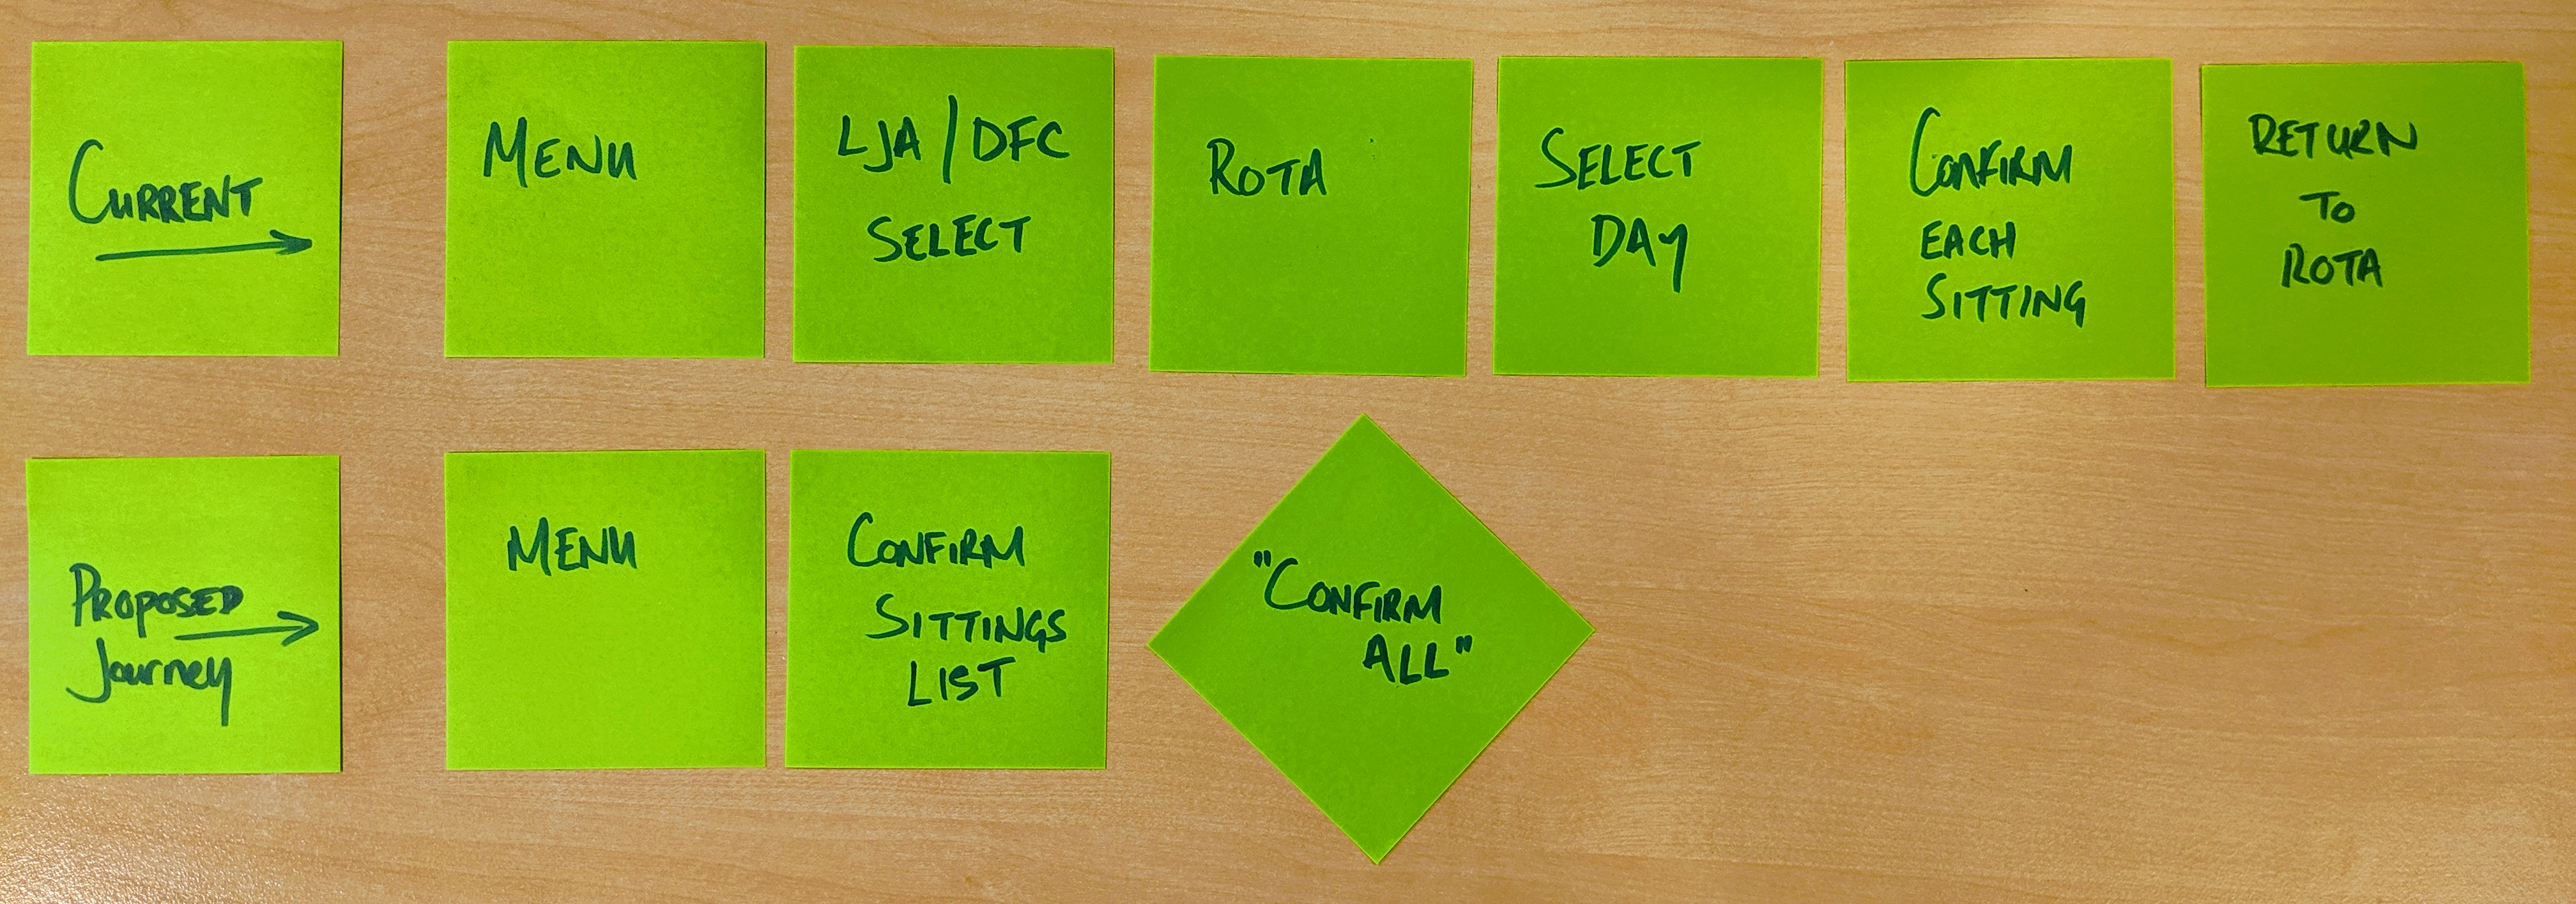 CURRENT
MENU
LJA/DFC
SELECT
ROTA
SELECT
DAY
CONFIRM
EACH
SITTING
RETURN
TO
ROTA
PROPOSED
Journey
MENU
CONFIRM
SITTINGS
LIST
"CONFIRM
ALL"